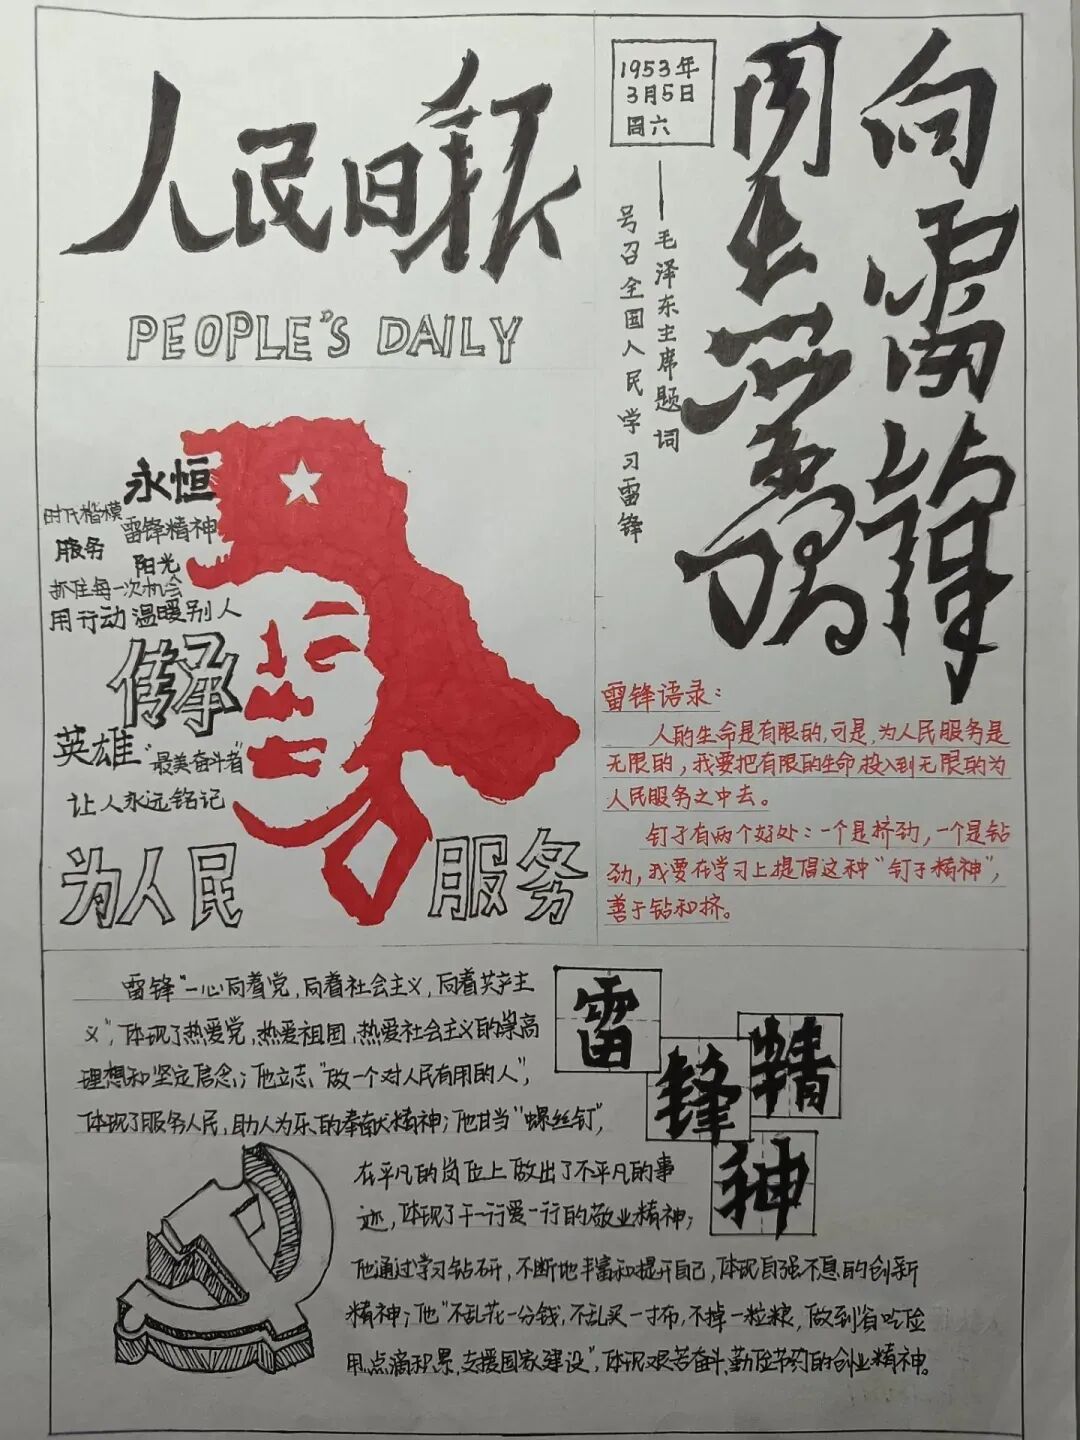 人民日报
PEOPLE'S DAILY
1953年
3月5日
周六
向雷锋
同志学习
——毛泽东主席题词
号召全国人民学习雷锋
永恒
时代楷模
雷锋精神
服务
阳光
抓住每一次机会
用行动温暖别人
传承
英雄
"最美奋斗者"
让人永远铭记
为人民服务
雷锋语录:
人的生命是有限的,可是,为人民服务是
无限的,我要把有限的生命,投入到无限的为
人民服务之中去。
钉子有两个好处:一个是挤劲,一个是钻
劲,我要在学习上提倡这种"钉子精神",
善于钻和挤。
雷锋精神
雷锋"一心向着党,向着社会主义,向着共产主
义",体现了热爱党,热爱祖国,热爱社会主义的崇高
理想和坚定信念;他立志"做一个对人民有用的人",
体现了服务人民,助人为乐的奉献精神;他甘当"螺丝钉",
在平凡的岗位上做出了不平凡的事
迹,体现了干一行爱一行的敬业精神;
他通过学习钻研,不断地丰富和提升自己,体现自强不息的创新
精神;他"不乱花一分钱,不乱买一寸布,不掉一粒粮,做到省吃俭
用,点滴积累,支援国家建设",体现艰苦奋斗、勤俭节约的创业精神。